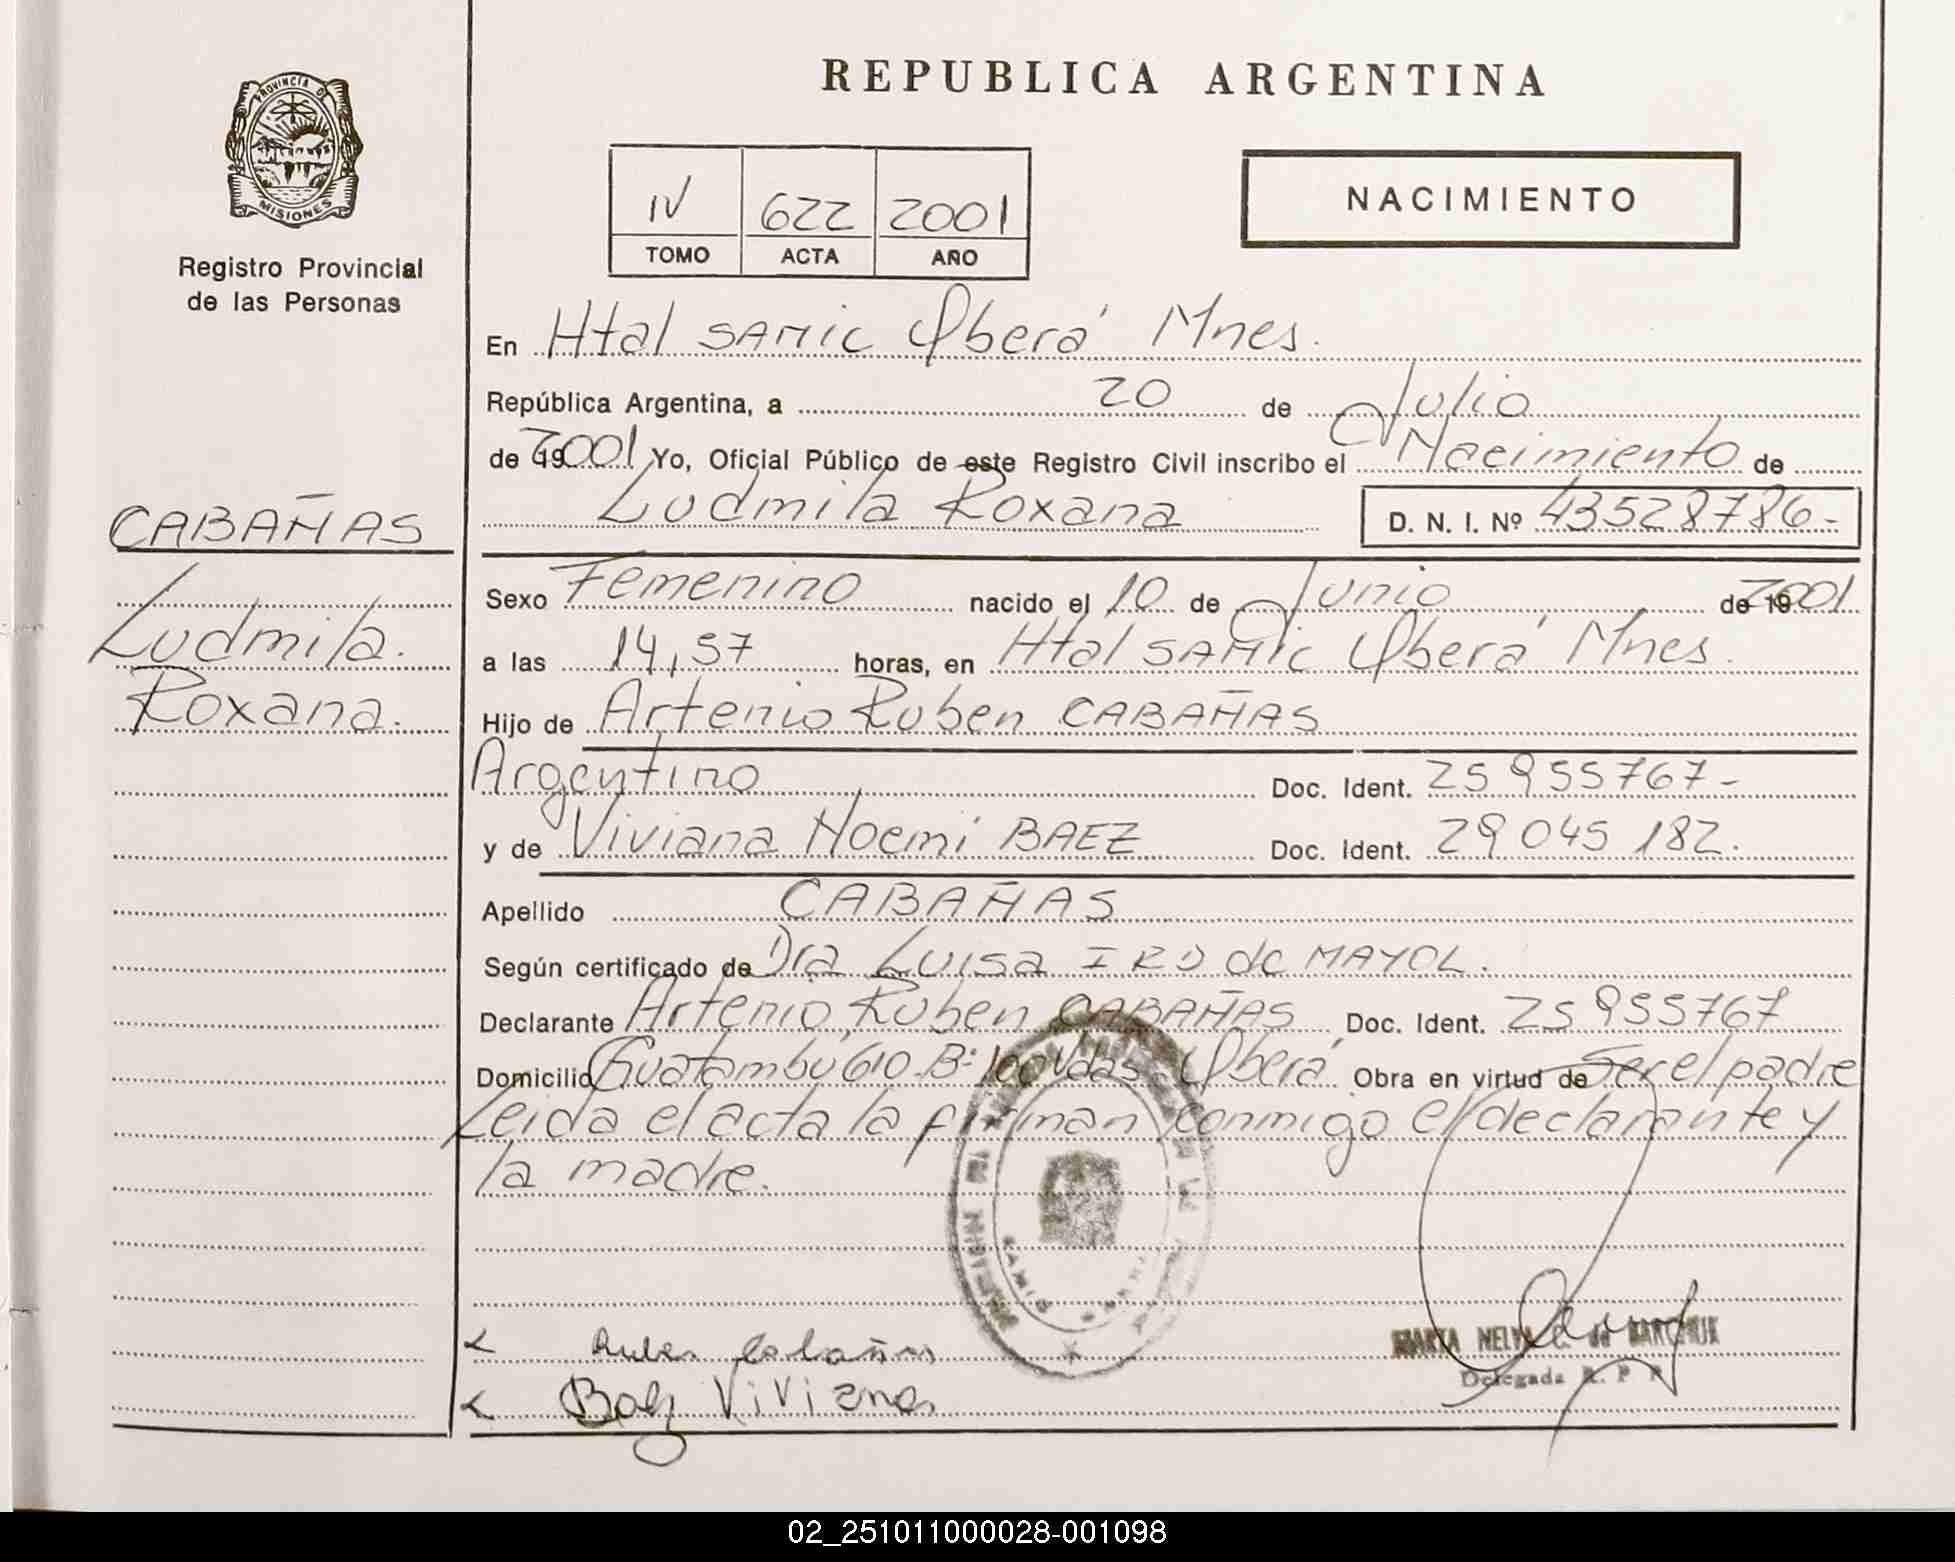 REPUBLICA ARGENTINA
PROVINCIA DE
MISIONES
Registro Provincial
de las Personas
IV 622 2001
TOMO ACTA AÑO
NACIMIENTO
En Htal SAMIC Oberá Mnes.
República Argentina, a 20 de Julio
de 2001 Yo, Oficial Público de este Registro Civil inscribo el Nacimiento de
Ludmila Roxana D. N. I. Nº 43528786-
CABAÑAS
Ludmila.
Roxana.
Sexo Femenino nacido el 10 de Junio de 2001
a las 14,57 horas, en Htal SAMIC Oberá Mnes.
Hijo de Artenio Ruben CABAÑAS
Argentino Doc. Ident. 25955767-
y de Viviana Noemi BAEZ Doc. Ident. 29045182.
Apellido CABAÑAS
Según certificado de Dra Luisa IRO de MAYOL.
Declarante Artenio Ruben CABAÑAS Doc. Ident. 25955767
Domicilio Guatambú 610 B: 100 Vdas Oberá Obra en virtud de Ser el padre
Leida el acta la firman conmigo el declarante y
la madre.
Ruben Cabañas
Baez Viviana
MARTA NELVA C. de
Delegada R. P. P.
02_251011000028-001098